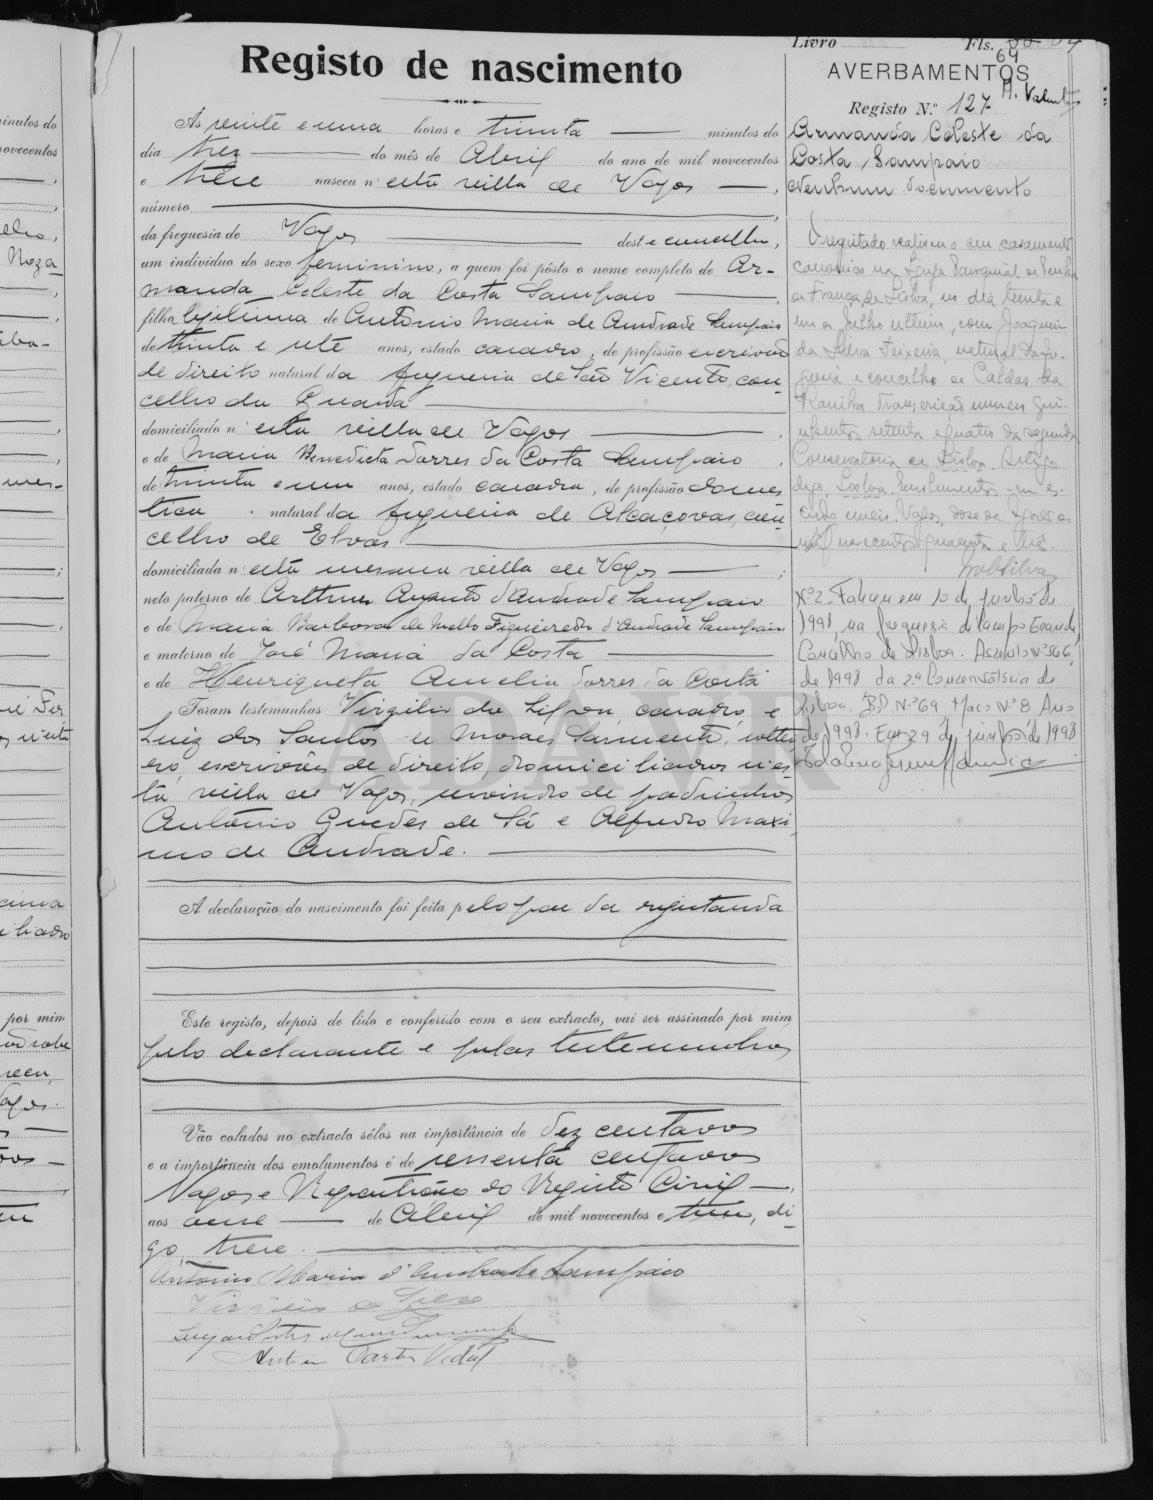 Livro Fls. 64
Registo de nascimento
AVERBAMENTOS
Registo N.º 127
Ás vinte e uma horas e trinta minutos do
dia tres do mês de Abril do ano de mil novecentos
e treze nasceu n'esta villa de Vagos,
número
da freguesia de Vagos deste concelho,
um individuo do sexo feminino, a quem foi pôsto o nome completo de Ar-
manda Celeste da Costa Sampaio
filha legitima de Antonio Maria de Andrade Sampaio
de trinta e sete anos, estado casado, de profissão escrivão
de direito natural da freguesia de São Vicente, con-
celho da Guarda
domiciliado n'esta villa de Vagos
e de Maria Benedicta Torres da Costa Sampaio,
de trinta e um anos, estado casada, de profissão domes-
tica, natural da freguesia de Alcaçovas, con-
celho de Elvas
domiciliada n'esta mesma villa de Vagos;
neto paterno de Arthur Augusto d'Andrade Sampaio
e de Maria Barbosa de Mello Figueiredo d'Andrade Sampaio
e materno de José Maria da Costa
e de Henriqueta Amelia Torres da Costa
Foram testemunhas Virgilio da Silva, casado, e
Luiz dos Santos de Moraes Sarmento, soltei-
ro, escrivães de direito, domiciliados n'es-
ta villa de Vagos, servindo de padrinhos
António Guedes de Sá e Alfredo Maxi-
mo de Andrade.
A declaração do nascimento foi feita pelo pae da registanda
Este registo, depois de lido e conferido com o seu extracto, vai ser assinado por mim
pelo declarante e pelas testemunhas
Vão colados no extracto sêlos na importância de dez centavos
e a importância dos emolumentos é de sessenta centavos
Vagos e Repartição do Registo Civil,
aos onze de Abril de mil novecentos e tres, di-
go, treze.
Antonio Maria d'Andrade Sampaio
Virgilio da Silva
Armanda Celeste da
Costa Sampaio
Nenhum documento
O registado realisou o seu casamento
canonico na Igreja Paroquial de Penha
de França, de Lisboa, no dia trinta e
um de Julho ultimo, com Joaquim
da Silva Teixeira, natural da fre-
guesia e concelho de Caldas da
Rainha. Transcrição numero qui-
nhentos setenta e quatro da segunda
Conservatoria de Lisboa.
Nº 2 - Faleceu em 10 de junho de
1998, na freguesia do Campo Grande
Concelho de Lisboa. Assento Nº 566,
de 1998 da 2ª Conservatória de
Lisboa. BD Nº 69 Maço Nº 8 Ano
de 1998. Em 29 de junho de 1998
ADAVR